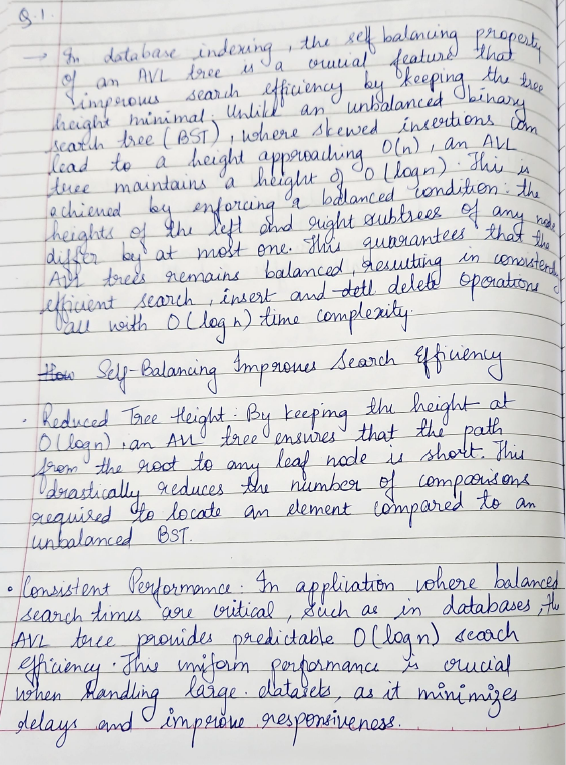 Q.1
→ In database indexing, the self balancing property
of an AVL tree is a crucial feature that
improves search efficiency by keeping the tree
height minimal. Unlike an unbalanced binary
search tree (BST), where skewed insertions can
lead to a height approaching O(n), an AVL
tree maintains a height of O(logn). This is
achieved by enforcing a balanced condition: the
heights of the left and right subtrees of any node
differ by at most one. This guarantees that the
AVL trees remains balanced, resulting in consistend
efficient search, insert and dell delete operations
all with O(log n) time complexity.
How Self-Balancing Improves Search Efficiency
• Reduced Tree Height: By keeping the height at
O(logn), an AVL tree ensures that the path
from the root to any leaf node is short. This
drastically reduces the number of comparisons
required to locate an element compared to an
unbalanced BST.
• Consistent Performance. In application where balanced
search times are critical, such as in databases, the
AVL tree provides predictable O(logn) search
efficiency. This uniform performance is crucial
when handling large datasets, as it minimizes
delays and improve responsiveness.